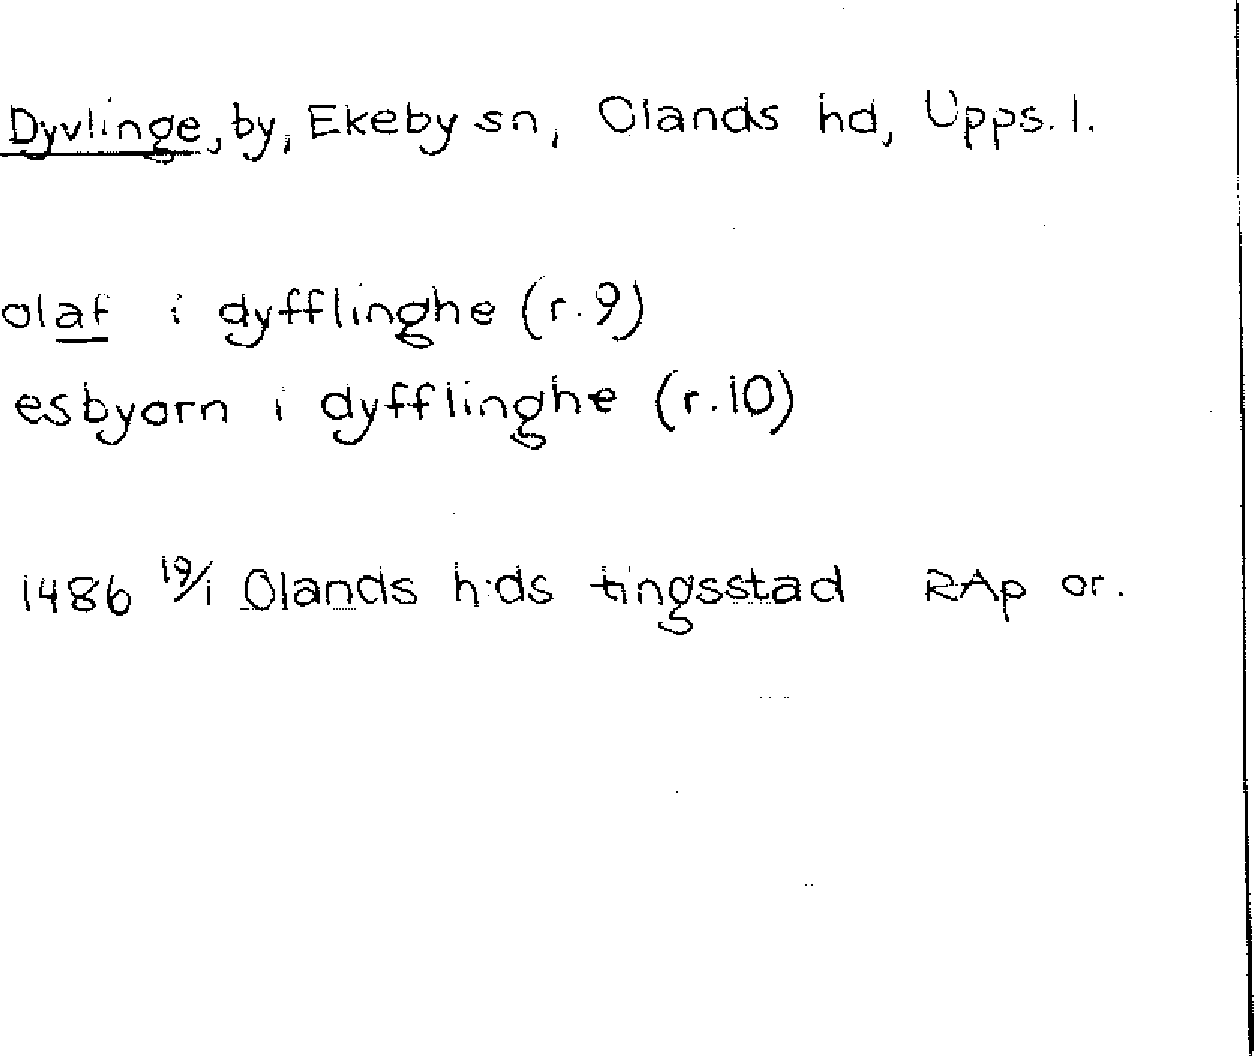 Dyvlinge, by, Ekeby sn, Olands hd, Upps. l.
olaf i dyfflinghe (r. 9)
esbyorn i dyfflinghe (r. 10)
1486 19/1 Olands h:ds tingsstad RAp or.